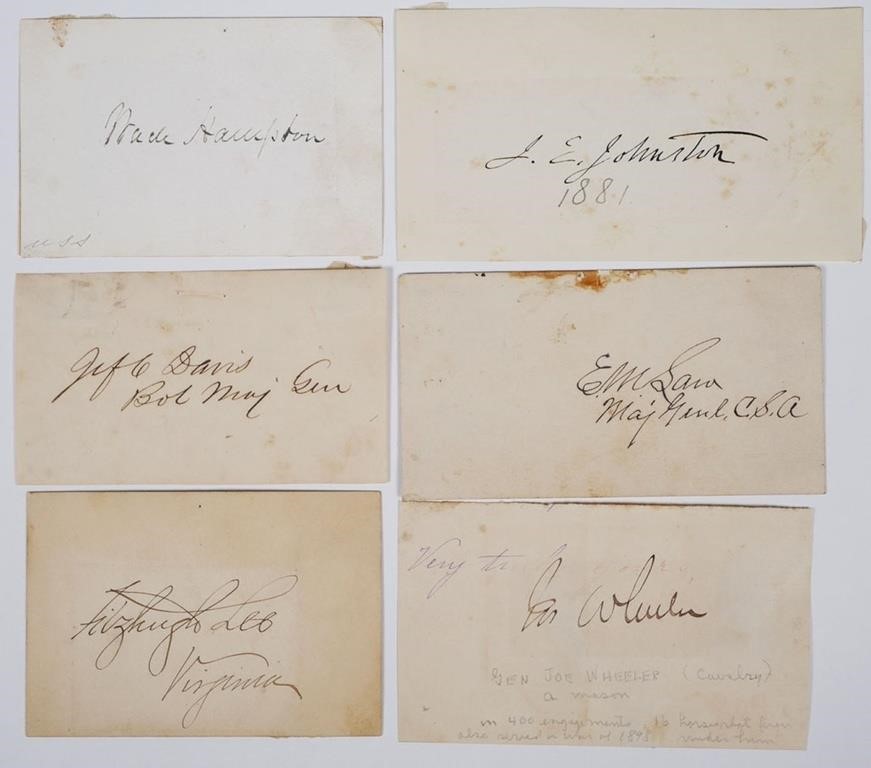 Wade Hampton
USS
J. E. Johnston
1881
Jef C Davis
Bvt Maj Gen
E. M Law
Maj Genl. C.S.A
Fitzhugh Lee
Virginia
Very
Jos Wheeler
GEN JOE WHEELER (Cavalry)
a mason
in 400 engagements, 16 horses shot from
also served in war of 1898 under him